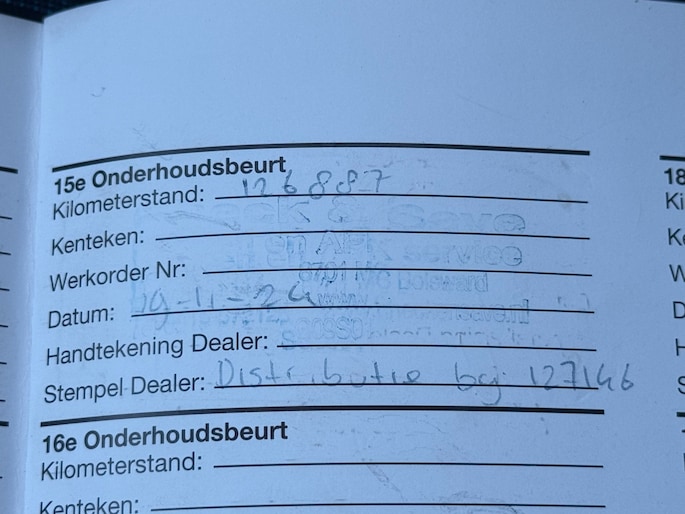 15e Onderhoudsbeurt
Kilometerstand: 126887
Kenteken:
Werkorder Nr:
Datum: 19-11-24
Handtekening Dealer:
Stempel Dealer: Distributie bij 127146
16e Onderhoudsbeurt
Kilometerstand:
Kenteken:
18
Ki
K
W
D
H
S